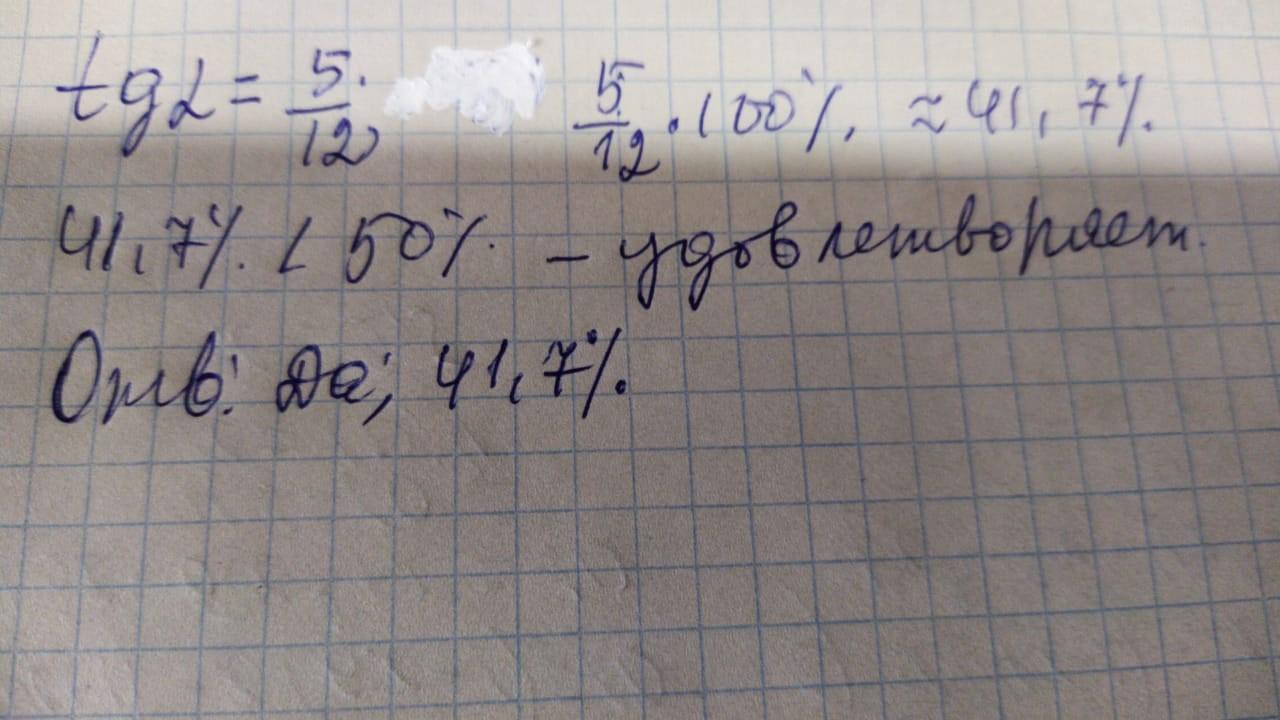 tg α = 5/12 5/12 · 100% ≈ 41,7%
41,7% < 50% – удовлетворяет.
Отв: Да; 41,7%